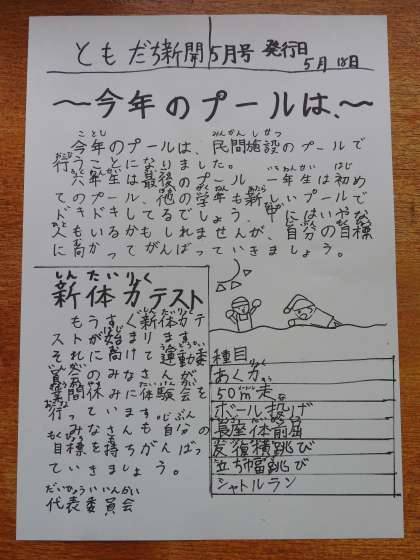 ともだち新聞5月号 発行日
5月18日
〜今年のプールは、〜
今年のプールは、民間施設のプールで
行うことになりました。
六年生は最後のプール、一年生は初め
てのプール、他の学年も新しいプールで
ドキドキしてるでしょう。中にはいやな
人もいるかもしれませんが、自分の目標
に向かってがんばっていきましょう。
新体力テスト
もうすぐ新体力テ
ストが始まります。
それに向けて運動委
員会のみなさんが
業間休みに体験会を
行っています。
みなさんも自分の
目標を持ちがんばっ
ていきましょう。
代表委員会
種目
あく力
50m走
ボール投げ
長座体前屈
反復横跳び
立ち幅跳び
シャトルラン